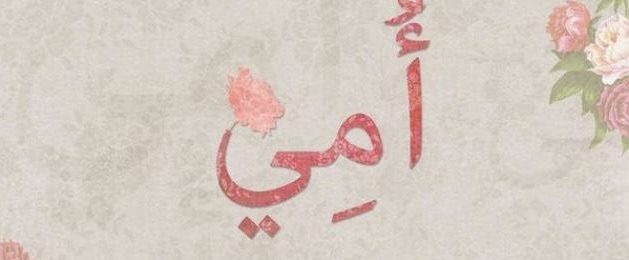 أُمِي